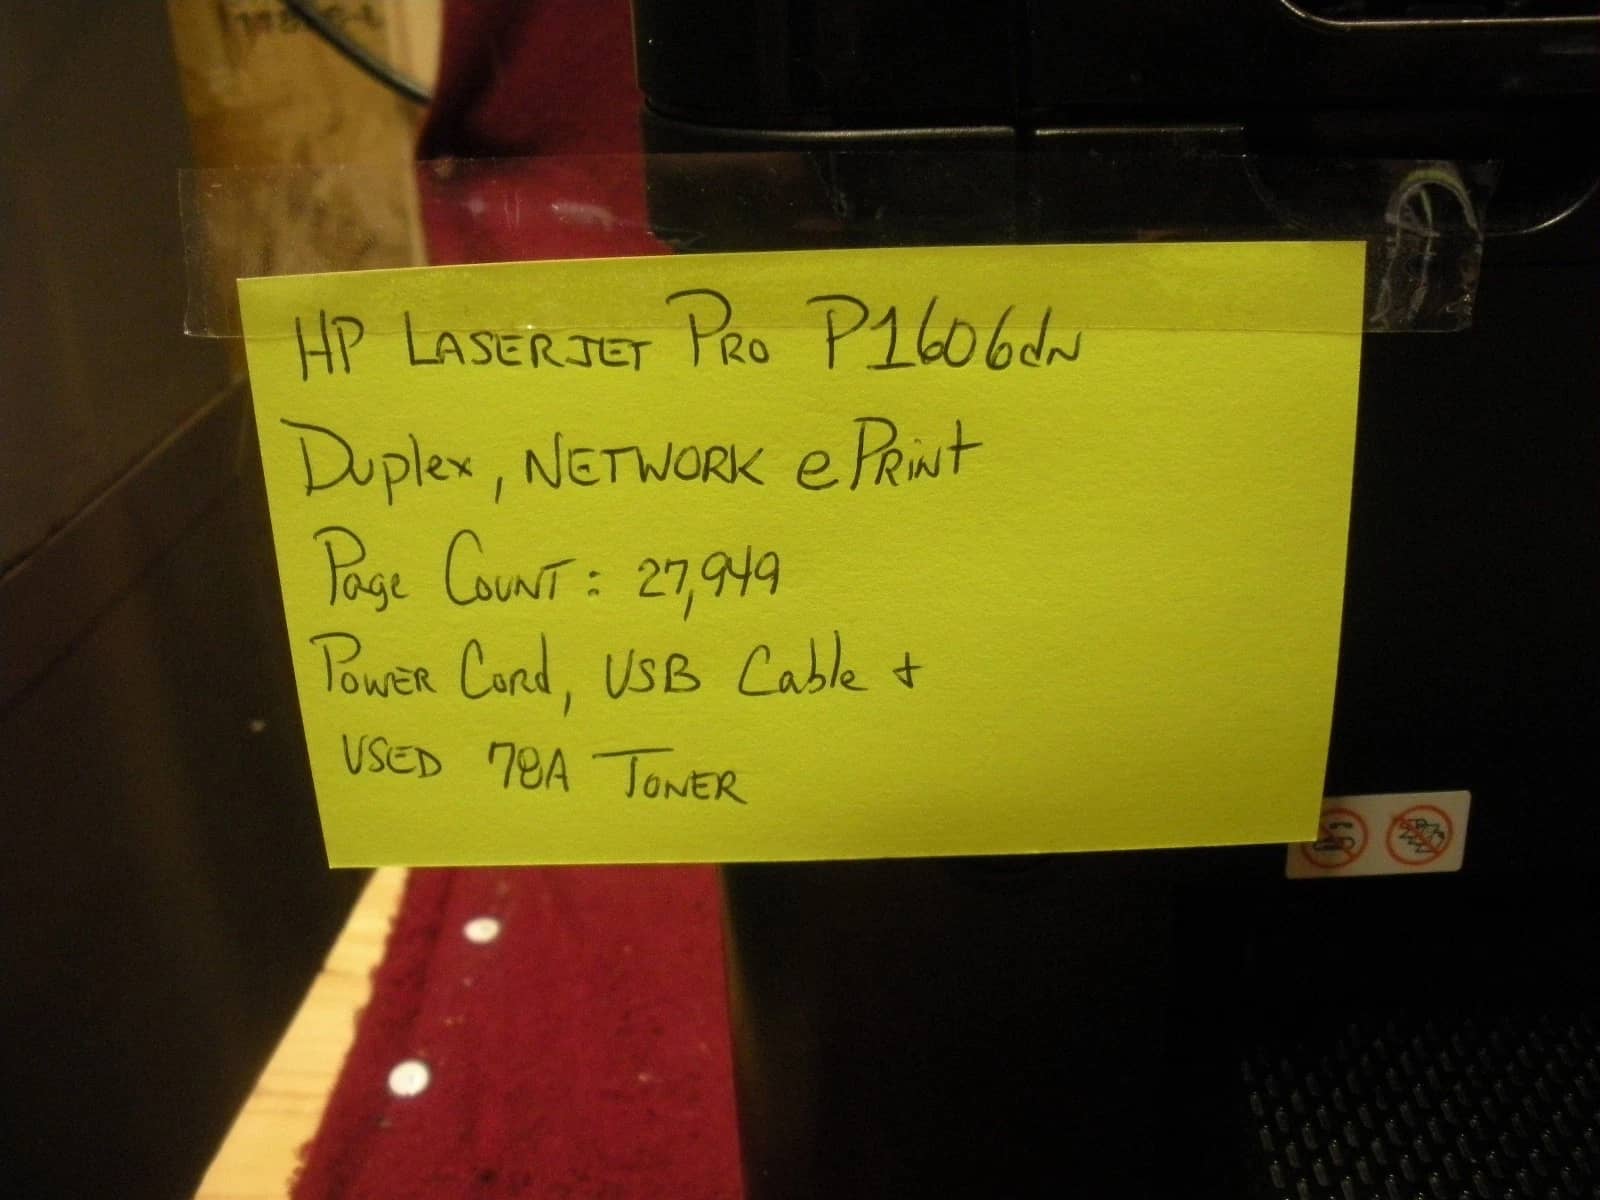 HP LASERJET PRO P1606dn
Duplex, NETWORK ePrint
Page Count: 27,949
Power Cord, USB Cable +
USED 78A TONER